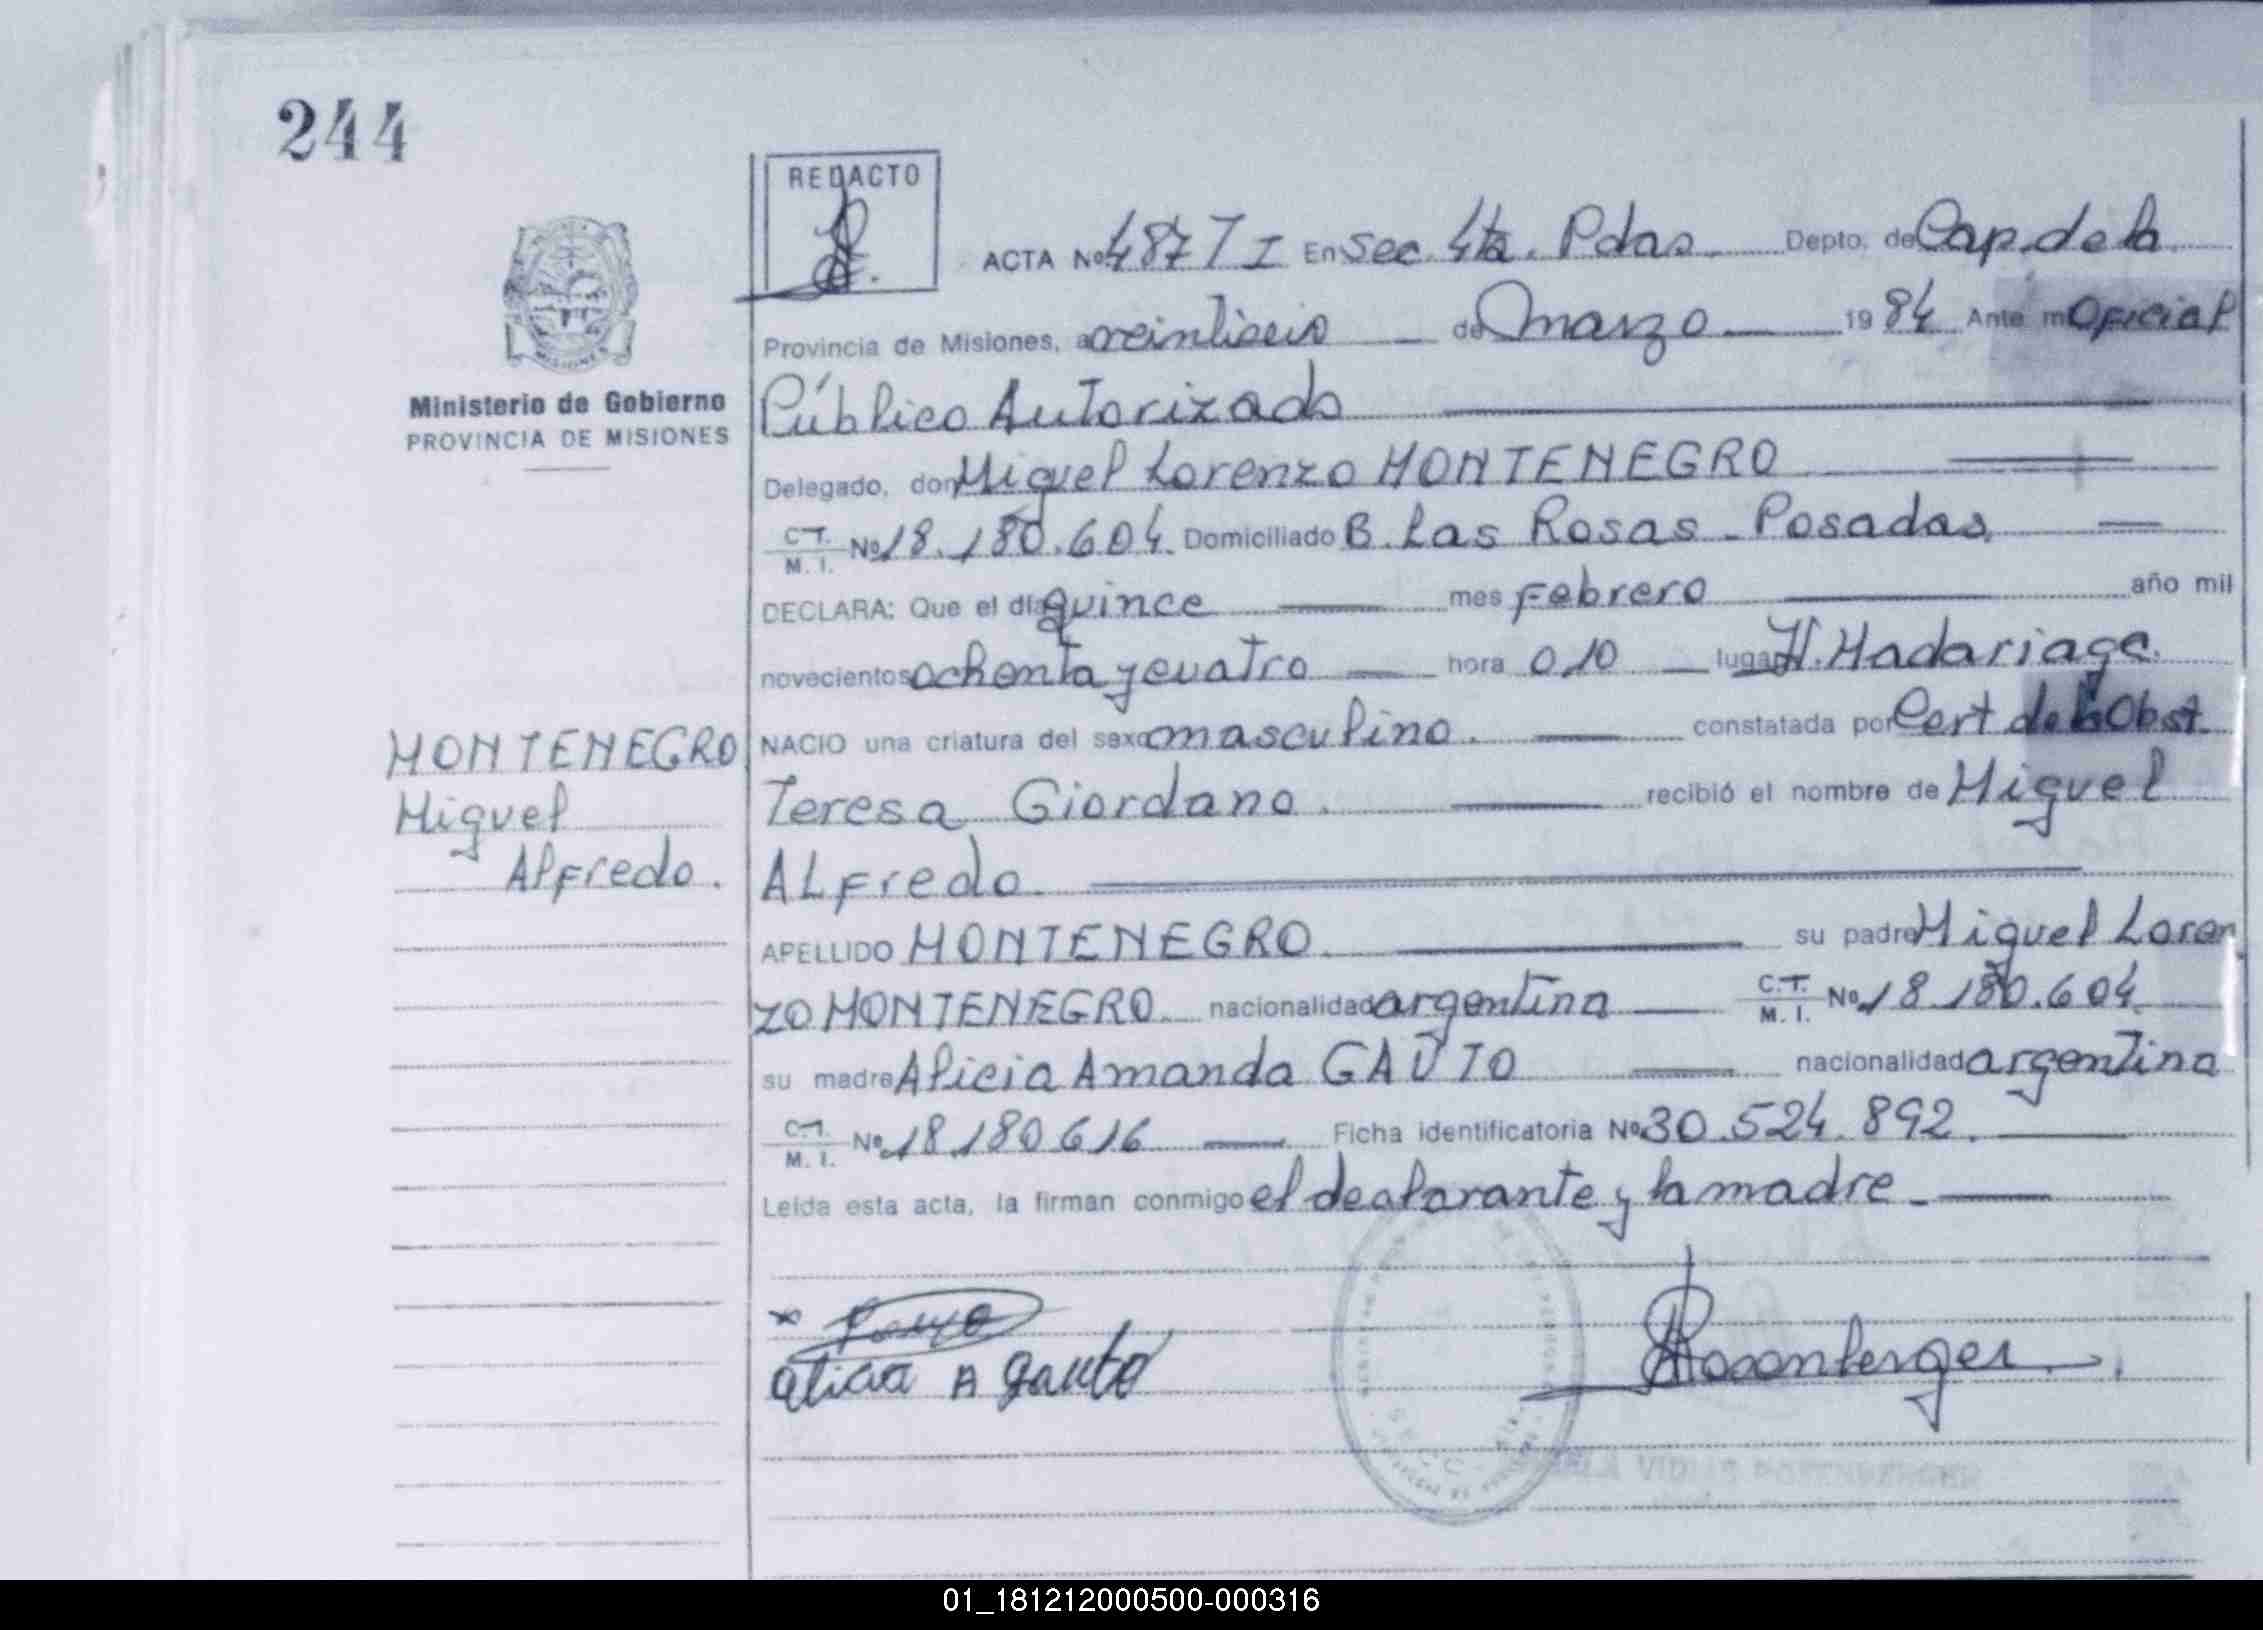 244
REDACTO
ACTA Nº 487 T I En Sec. 4ta. Pdas. Depto. de Cap. de la
Provincia de Misiones, a veintiseis de marzo 1984 Ante mi Oficial
Público Autorizado
Ministerio de Gobierno
PROVINCIA DE MISIONES
MISIONES
Delegado, don Miguel Lorenzo MONTENEGRO
C.I. M. I. Nº 18.180.604 Domiciliado B. Las Rosas - Posadas,
DECLARA: Que el día quince mes Febrero año mil
novecientos ochenta y cuatro hora 0,10 lugar H. Madariaga.
NACIO una criatura del sexo masculino. constatada por Cert de la Obst.
Teresa Giordano. recibió el nombre de Miguel
ALFredo.
MONTENEGRO
Miguel
Alfredo.
APELLIDO MONTENEGRO su padre Miguel Loren
ZO MONTENEGRO. nacionalidad argentina C.I. M. I. Nº 18.180.604
su madre Alicia Amanda GAUTO nacionalidad argentina
C.I. M. I. Nº 18.180616 Ficha identificatoria Nº 30.524.892.
Leída esta acta, la firman conmigo el dealarante y la madre -
alicia A gauto
Rosenberger
01_181212000500-000316